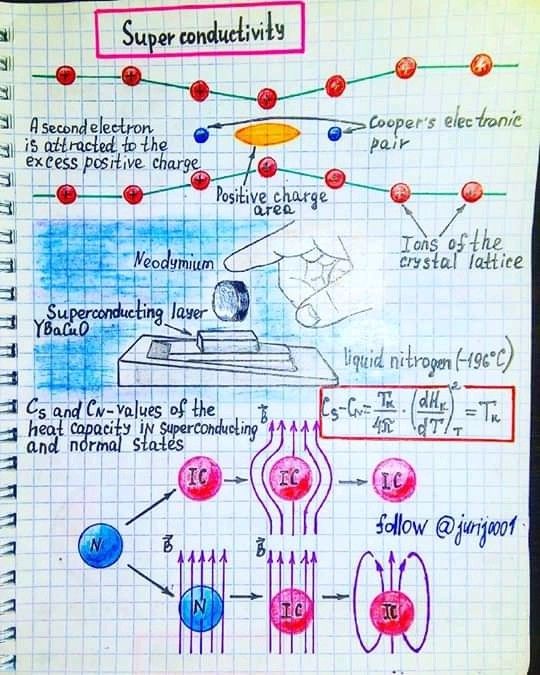 Superconductivity
+ + + + + + +
A second electron
is attracted to the
excess positive charge
Cooper's electronic
pair
+ + + + + + +
Positive charge
area
Ions of the
crystal lattice
Neodymium
Superconducting layer
YBaCuO
liquid nitrogen (-196°C)
Cs and Cɴ-values of the
heat capacity in superconducting
and normal states
Cs-Cɴ=Tκ/4π·(dHκ/dT)²T=Tκ
B⃗
IC IC IC
follow @jurij0001
N
B⃗ B⃗
N IC IC